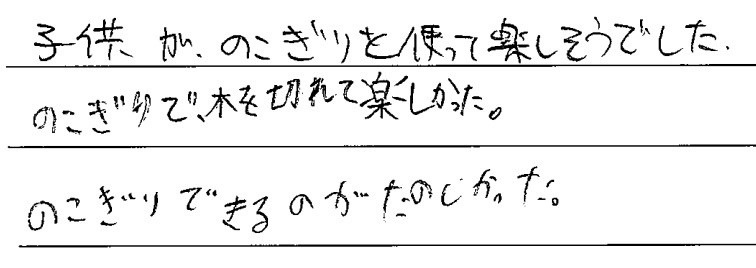 子供が、のこぎりを使って楽しそうでした.
のこぎりで、木を切れて楽しかった。
のこぎりできるのがたのしかった。